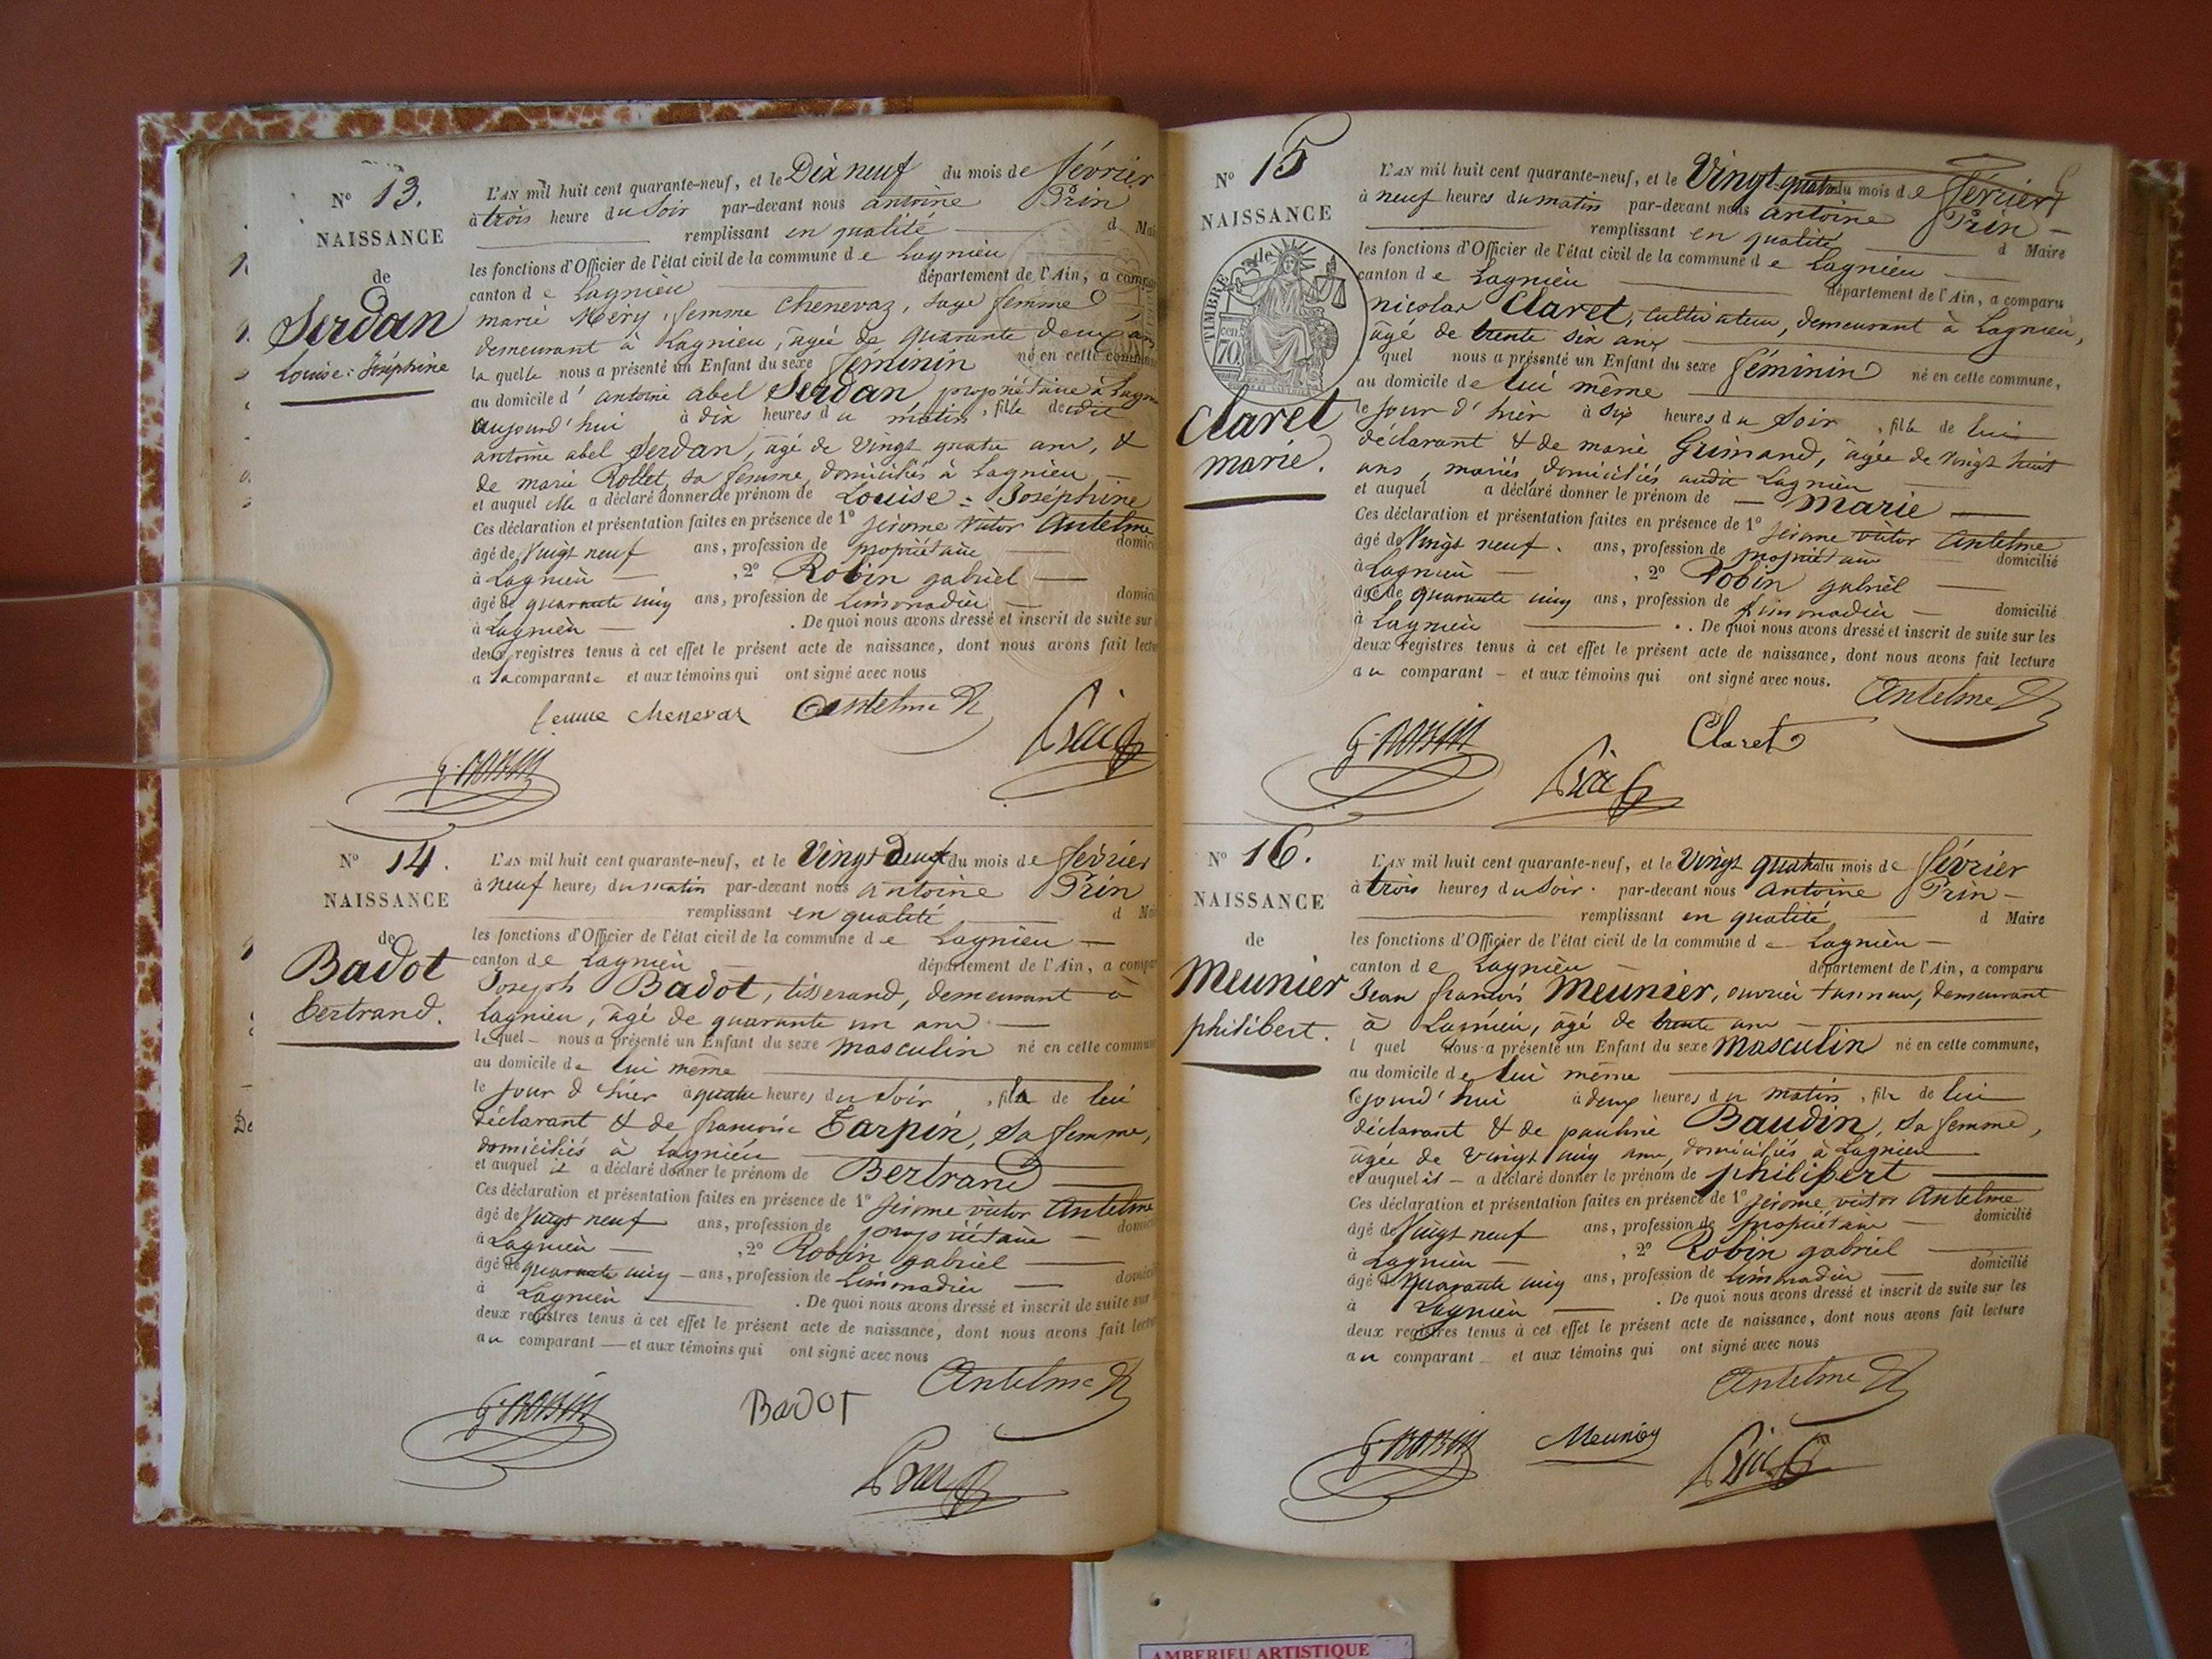 N° 13.
NAISSANCE
de
Serdan
Louise-Joséphine
L'AN mil huit cent quarante-neuf, et le Dix neuf du mois de février
à trois heure du soir par-devant nous antoine Prin
remplissant en qualité d Mai
les fonctions d'Officier de l'état civil de la commune de Lagnieu
canton de Lagnieu département de l'Ain, a compa
marie Méry, femme Chenevaz, sage femme
demeurant à Lagnieu, âgée de quarante deux ans
la quelle nous a présenté un Enfant du sexe féminin né en cette commune
au domicile d'antoine abel Serdan, propriétaire à Lagnieu
aujourd'hui à dix heures du matin, fille dudit
antoine abel Serdan, âgé de vingt quatre ans, &
de marie Rollet, sa femme, domiciliés à Lagnieu
et auquel elle a déclaré donner le prénom de Louise=Joséphine
Ces déclaration et présentation faites en présence de 1° jérome victor Antelme
âgé de vingt neuf ans, profession de propriétaire domici
à Lagnieu, 2° Robin gabriel
âgé de quarante cinq ans, profession de limonadier domici
à Lagnieu. De quoi nous avons dressé et inscrit de suite sur
deux registres tenus à cet effet le présent acte de naissance, dont nous avons fait lectu
a la comparante et aux témoins qui ont signé avec nous
femme chenevaz Antelme
Prin
G. ROBIN
N° 14.
NAISSANCE
de
Badot
bertrand.
L'AN mil huit cent quarante-neuf, et le Vingt deux du mois de février
à neuf heures du matin par-devant nous antoine Prin
remplissant en qualité d Mai
les fonctions d'Officier de l'état civil de la commune de Lagnieu
canton de Lagnieu département de l'Ain, a compa
Joseph Badot, tisserand, demeurant à
Lagnieu, âgé de quarante un ans
lequel nous a présenté un Enfant du sexe masculin né en cette commune
au domicile de lui même
le jour d'hier à quatre heures du soir, fils de lui
déclarant & de francoise Tarpin, sa femme,
domiciliés à Lagnieu
et auquel il a déclaré donner le prénom de Bertrand
Ces déclaration et présentation faites en présence de 1° jérome victor Antelme
âgé de vingt neuf ans, profession de propriétaire domici
à Lagnieu, 2° Robin gabriel
âgé de quarante cinq ans, profession de limonadier domici
à Lagnieu. De quoi nous avons dressé et inscrit de suite sur
deux registres tenus à cet effet le présent acte de naissance, dont nous avons fait lectu
au comparant et aux témoins qui ont signé avec nous
Antelme
G. ROBIN BADOT
Prin
N° 15
NAISSANCE
TIMBRE
cen 70
Claret
marie.
L'AN mil huit cent quarante-neuf, et le Vingt quatre du mois de février
à neuf heures du matin par-devant nous antoine Prin
remplissant en qualité d Maire
les fonctions d'Officier de l'état civil de la commune de Lagnieu
canton de Lagnieu département de l'Ain, a comparu
nicolas Claret, cultivateur, demeurant à Lagnieu,
âgé de trente six ans
quel nous a présenté un Enfant du sexe féminin né en cette commune,
au domicile de lui même
le jour d'hier à six heures du soir, fille de lui
déclarant & de marie Guinand, âgée de vingt huit
ans, mariés, domiciliés audit Lagnieu
et auquel a déclaré donner le prénom de marie
Ces déclaration et présentation faites en présence de 1° jérome victor Antelme
âgé de vingt neuf. ans, profession de propriétaire domicilié
à Lagnieu, 2° Robin gabriel
âgé de quarante cinq ans, profession de limonadier domicilié
à Lagnieu. De quoi nous avons dressé et inscrit de suite sur les
deux registres tenus à cet effet le présent acte de naissance, dont nous avons fait lecture
au comparant et aux témoins qui ont signé avec nous.
Antelme
G. ROBIN Claret
Prin
N° 16.
NAISSANCE
de
Meunier
philibert.
L'AN mil huit cent quarante-neuf, et le Vingt quatre du mois de février
à trois heures du soir. par-devant nous antoine Prin
remplissant en qualité d Maire
les fonctions d'Officier de l'état civil de la commune de Lagnieu
canton de Lagnieu département de l'Ain, a comparu
Jean francois Meunier, ouvrier tanneur, demeurant
à Lagnieu, âgé de trente ans
l quel nous a présenté un Enfant du sexe masculin né en cette commune,
au domicile de lui même
cejourd'hui à deux heures du matin, fils de lui
déclarant & de pauline Baudin, sa femme,
agée de vingt cinq ans, domiciliés à Lagnieu
et auquel il a déclaré donner le prénom de philibert
Ces déclaration et présentation faites en présence de 1° jérome victor Antelme
âgé de vingt neuf ans, profession de propriétaire domicilié
à Lagnieu, 2° Robin gabriel
âgé de quarante cinq ans, profession de limonadier domicilié
à Lagnieu. De quoi nous avons dressé et inscrit de suite sur les
deux registres tenus à cet effet le présent acte de naissance, dont nous avons fait lecture
au comparant et aux témoins qui ont signé avec nous
Antelme
G. ROBIN Meunier Prin
AMBERIEU ARTISTIQUE